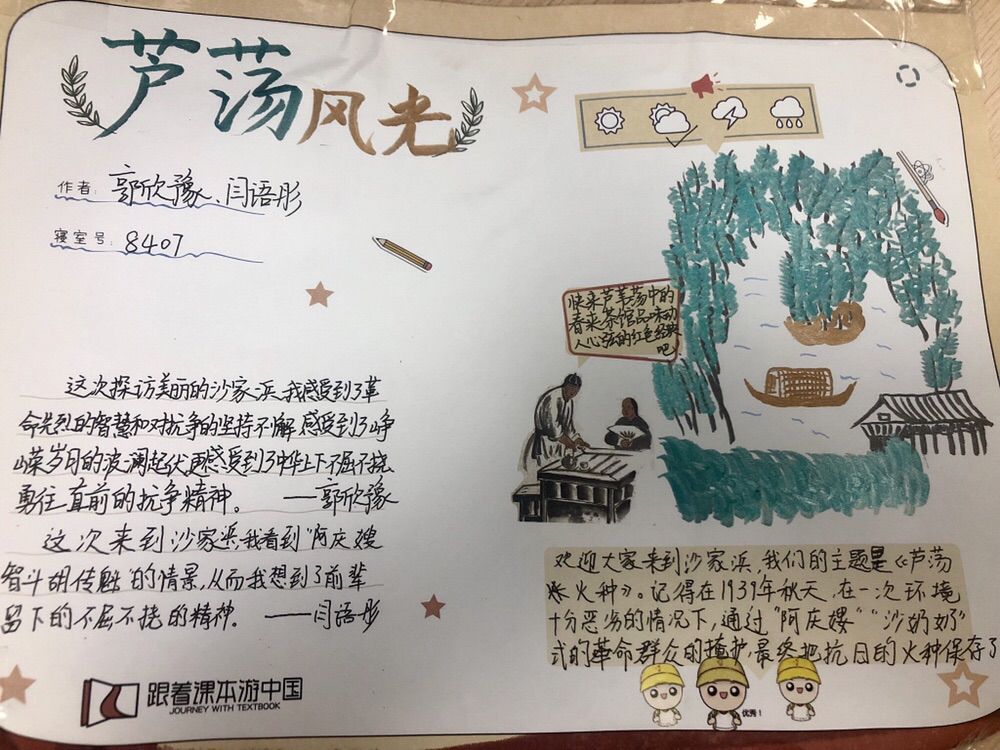 芦荡风光
作者：郭欣豫、闫语彤
寝室号：8407
快来芦苇荡中的
春来茶馆品味动
人心弦的红色经典
吧
这次探访美丽的沙家浜，我感受到了革
命先烈的智慧和对抗争的坚持不懈，感受到了峥
嵘岁月的波澜起伏，更感受到了中华上下不屈不挠，
勇往直前的抗争精神。——郭欣豫
这次来到沙家浜，我看到“阿庆嫂
智斗胡传魁”的情景，从而我想到了前辈
留下的不屈不挠的精神。——闫语彤
欢迎大家来到沙家浜，我们的主题是《芦荡
火种》。记得在1939年秋天，在一次环境
十分恶劣的情况下，通过“阿庆嫂”“沙奶奶”
式的革命群众的掩护，最终把抗日的火种保存了
优秀！
跟着课本游中国
JOURNEY WITH TEXTBOOK